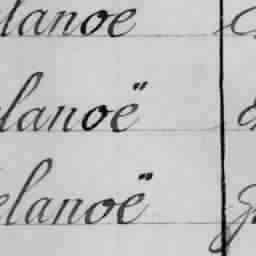 lanoe
lanoë
elanoë